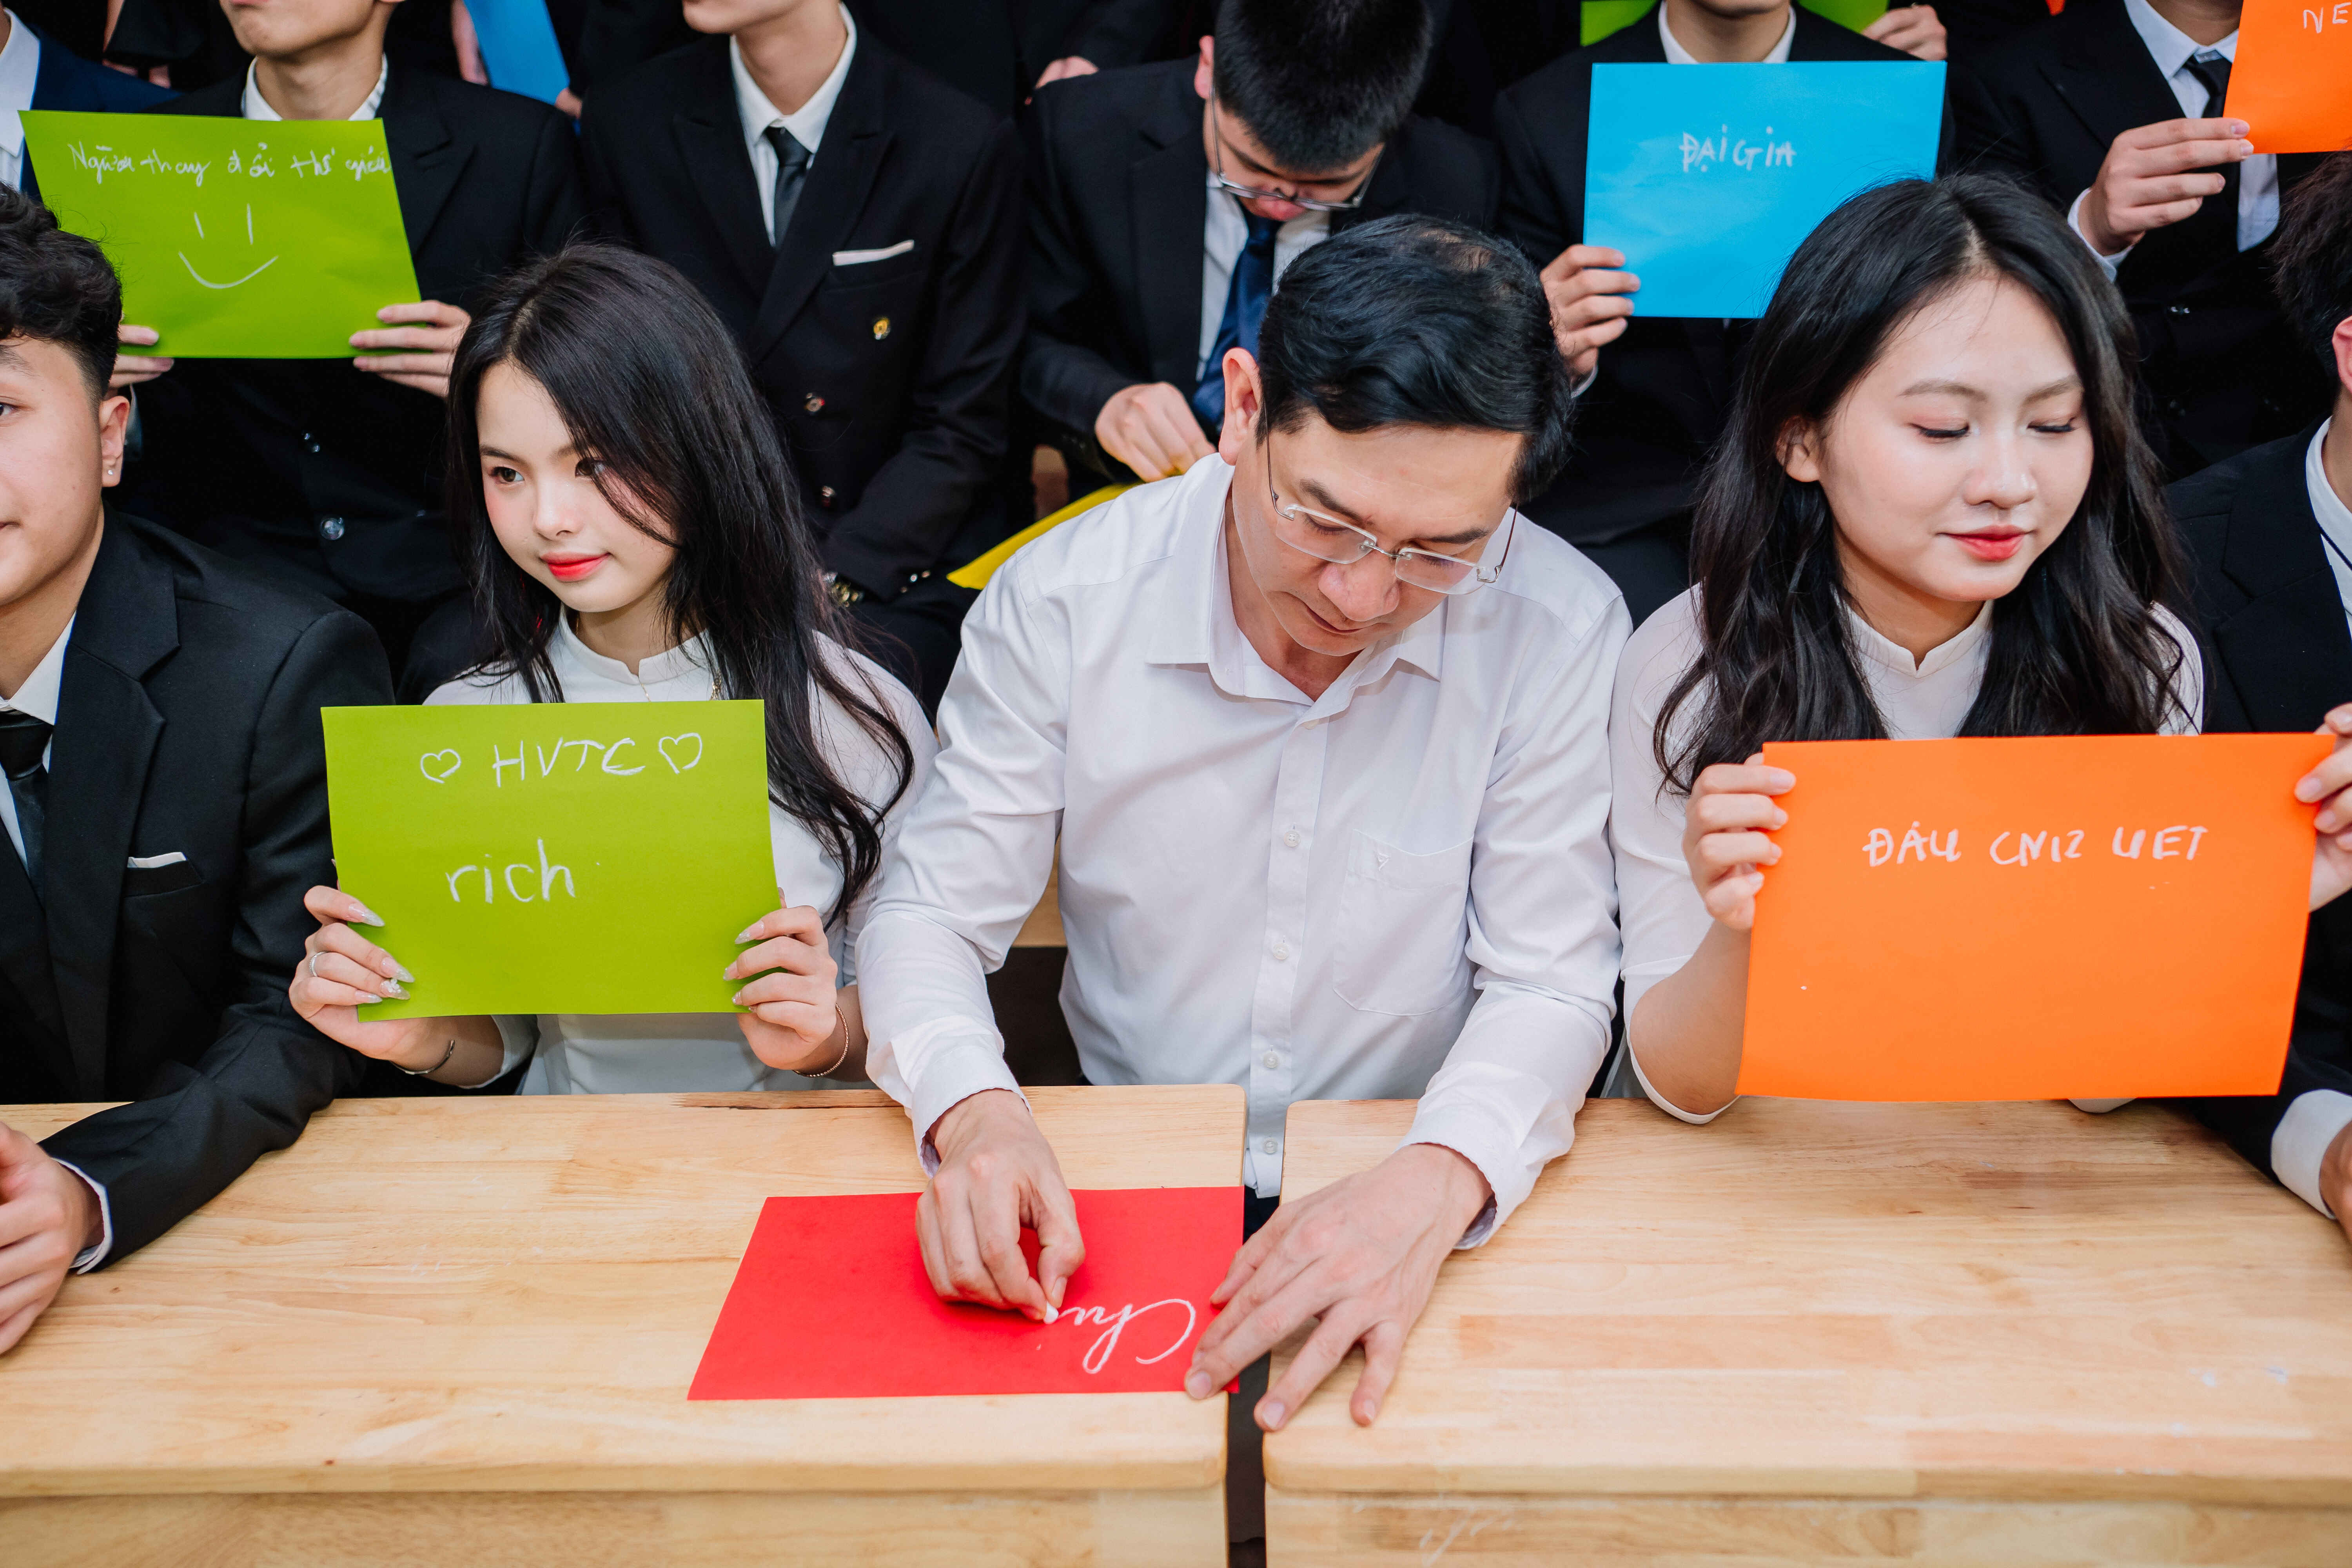 Người thay đổi thế giới
ĐẠI GIA
NE
♡ HVTC ♡
rich
ĐÁU CNIZ UET
Chú